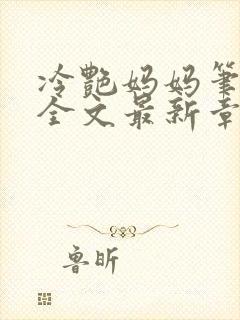 冷艷妈妈笔
全文最新章
鲁昕